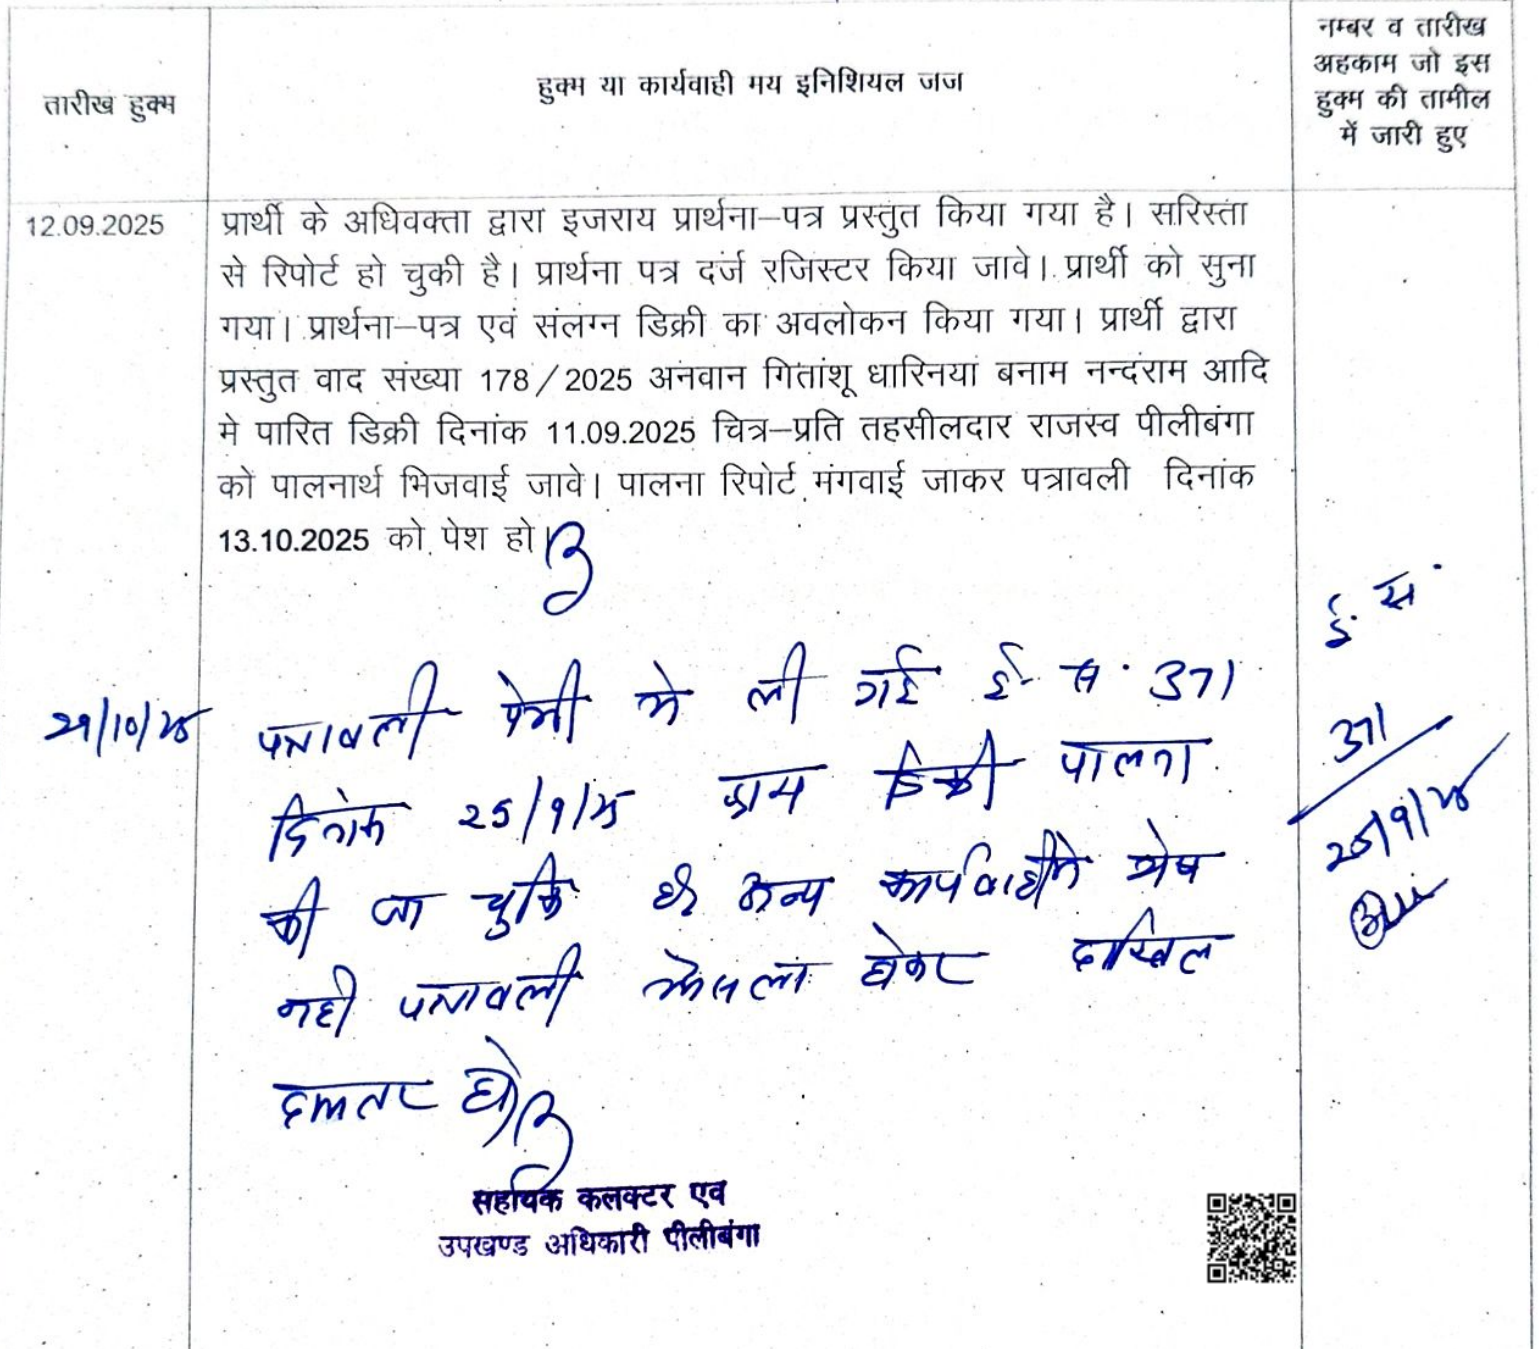 तारीख हुक्म
हुक्म या कार्यवाही मय इनिशियल जज
नम्बर व तारीख
अहकाम जो इस
हुक्म की तामील
में जारी हुए
12.09.2025
प्रार्थी के अधिवक्ता द्वारा इजराय प्रार्थना–पत्र प्रस्तुत किया गया है। सरिस्ता
से रिपोर्ट हो चुकी है। प्रार्थना पत्र दर्ज रजिस्टर किया जावे। प्रार्थी को सुना
गया। प्रार्थना–पत्र एवं संलग्न डिक्री का अवलोकन किया गया। प्रार्थी द्वारा
प्रस्तुत वाद संख्या 178/2025 अनवान गितांशू धारनियां बनाम नन्दराम आदि
मे पारित डिक्री दिनांक 11.09.2025 चित्र–प्रति तहसीलदार राजस्व पीलीबंगा
को पालनार्थ भिजवाई जावे। पालना रिपोर्ट मंगवाई जाकर पत्रावली दिनांक
13.10.2025 को पेश हो।
29/10/25
पत्रावली पेशी मे ली गई ई. स. 371
दिनांक 25/9/25 डिक्री पालना
की जा चुकि है अन्य कार्यवाही शेष
नही पत्रावली फैसला होकर दाखिल
दफ्तर हो
ई. स.
371
25/9/25
सहायक कलक्टर एव
उपखण्ड अधिकारी पीलीबंगा